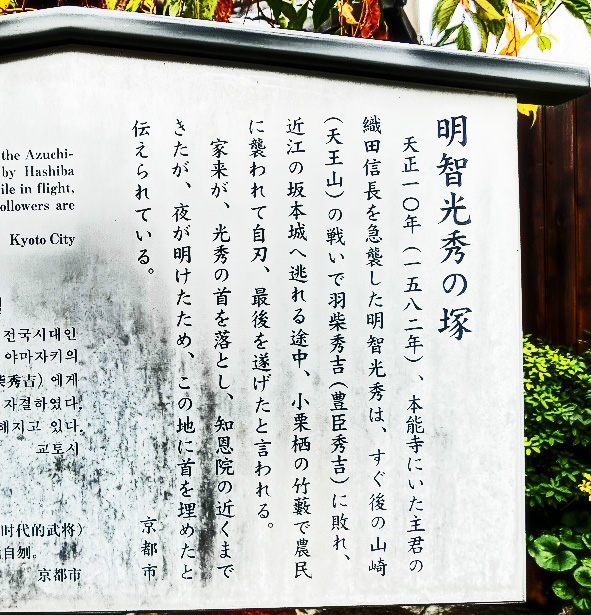 明智光秀の塚
天正一〇年（一五八二年）、本能寺にいた主君の
織田信長を急襲した明智光秀は、すぐ後の山崎
（天王山）の戦いで羽柴秀吉（豊臣秀吉）に敗れ、
近江の坂本城へ逃れる途中、小栗栖の竹藪で農民
に襲われて自刃、最後を遂げたと言われる。
家来が、光秀の首を落とし、知恩院の近くまで
きたが、夜が明けたため、この地に首を埋めたと
伝えられている。
京都市
the Azuchi-
by Hashiba
ile in flight,
ollowers are
Kyoto City
전국시대인
야마자키의
柴秀吉) 에게
자결하였다.
해지고 있다.
교토시
时代的武将）
自刎。
京都市